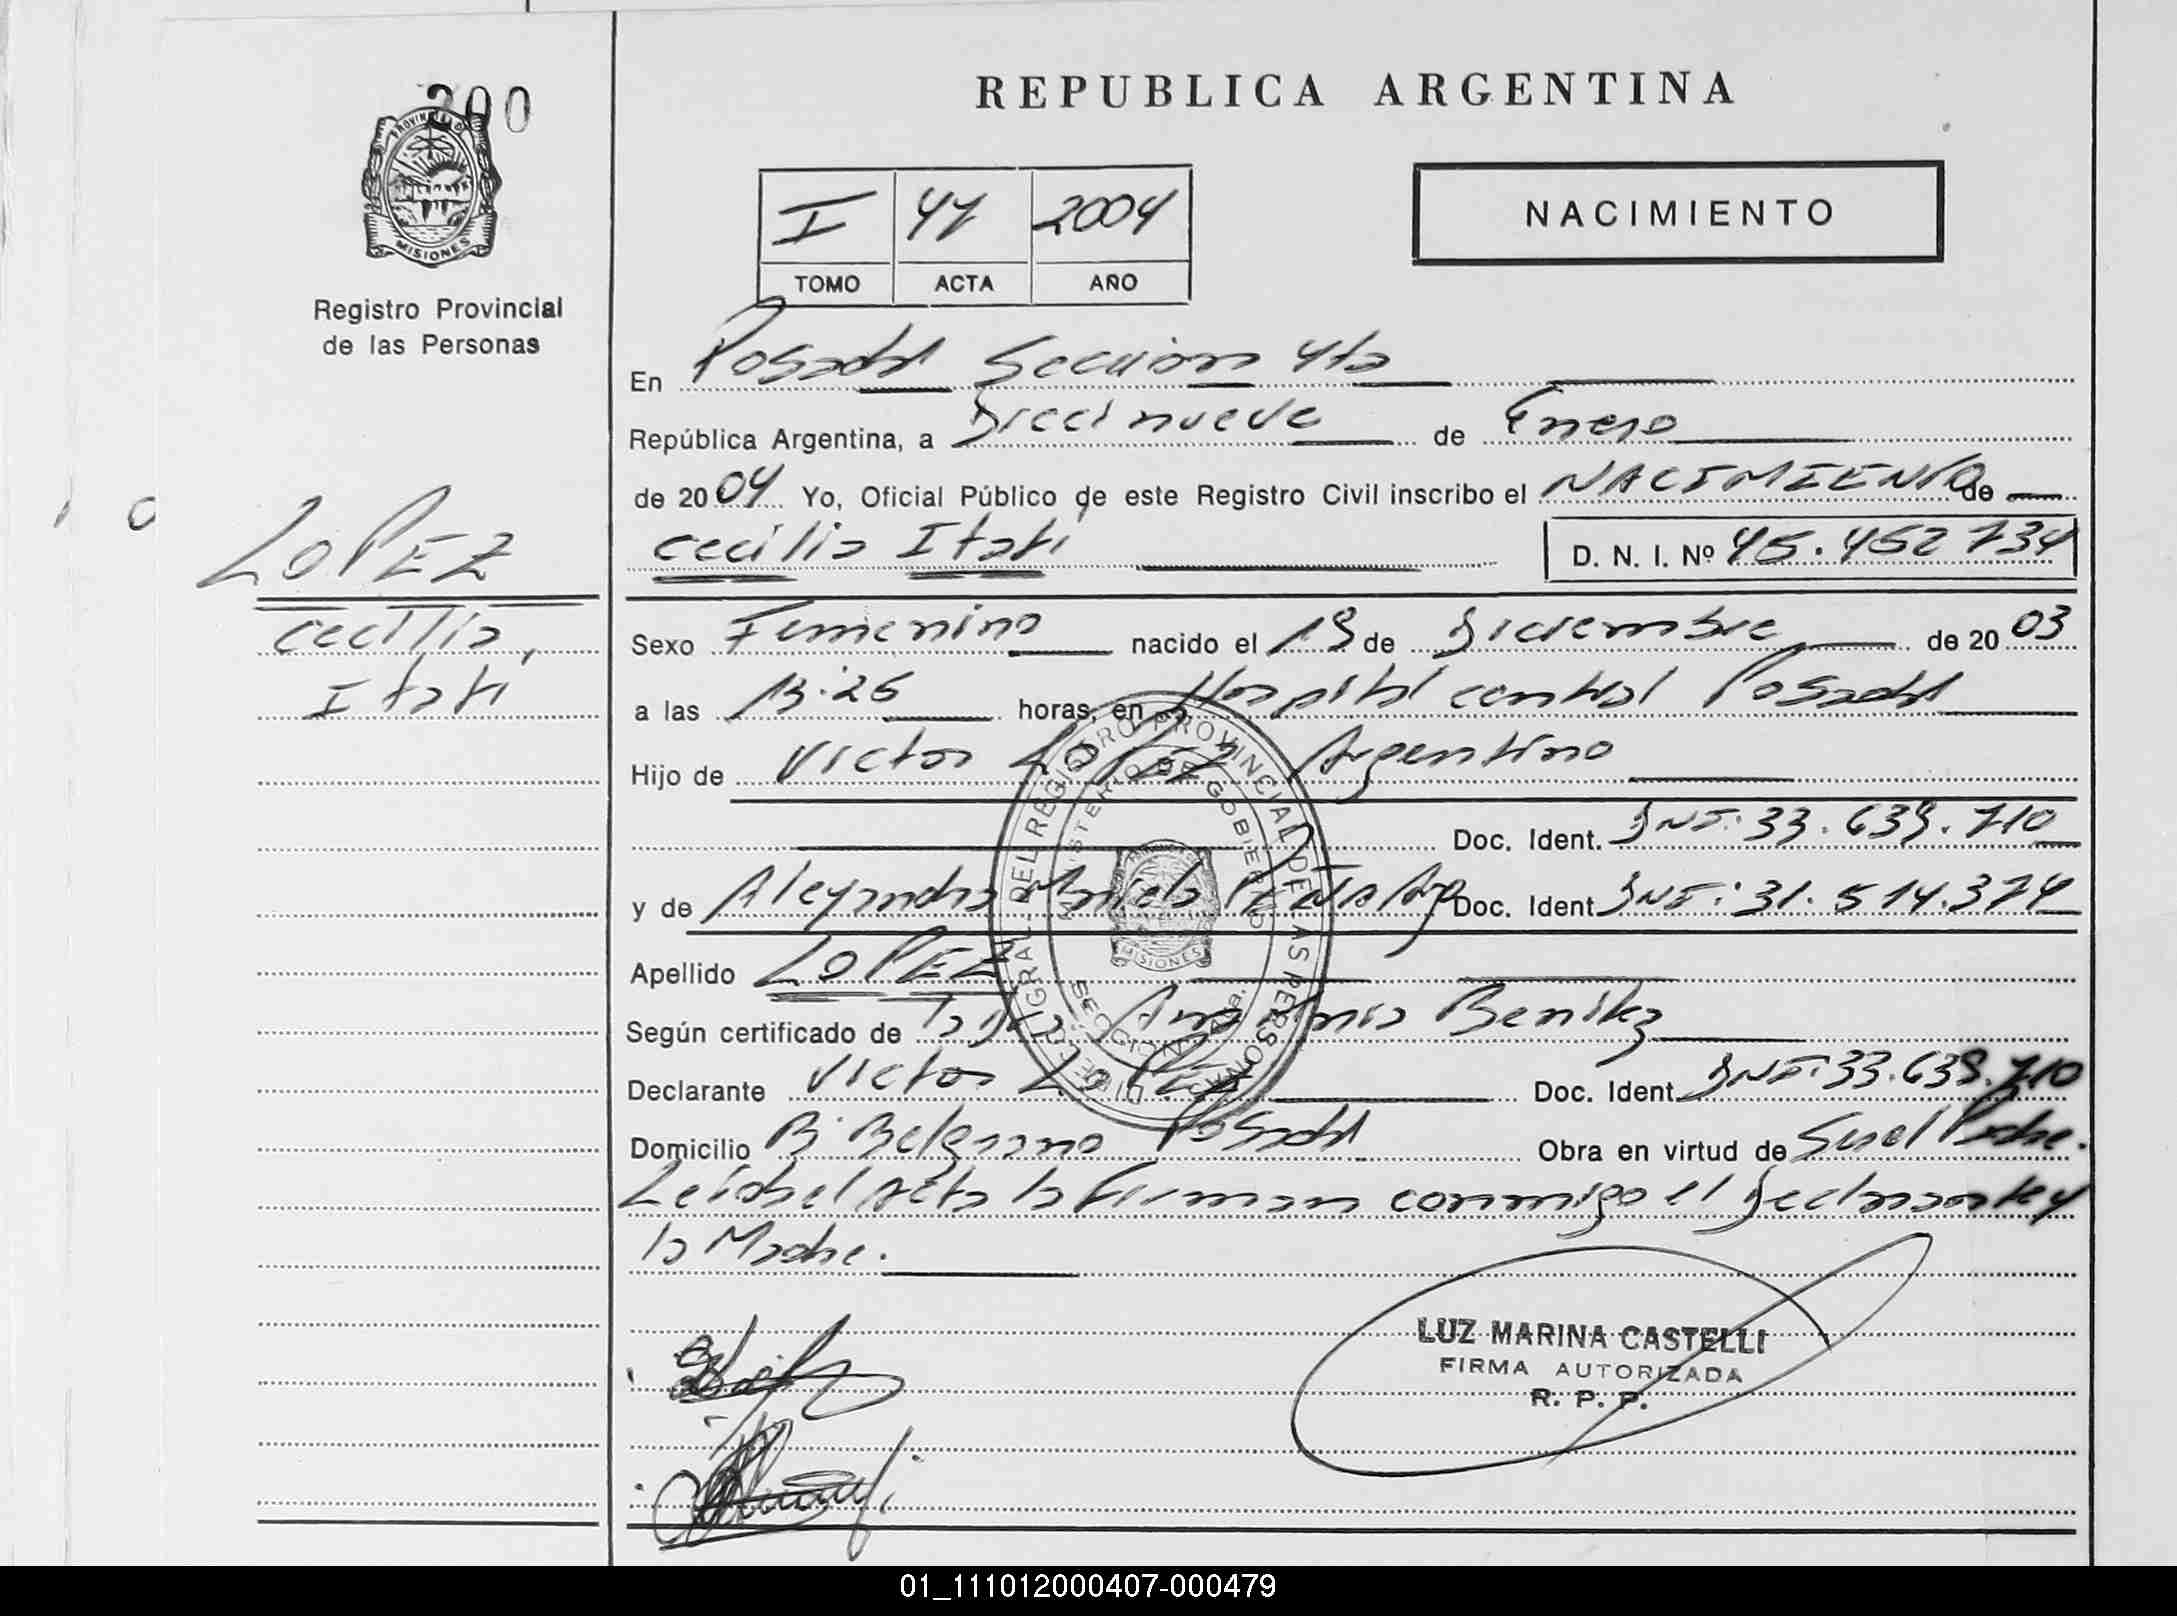 200
PROVINCIA D
MISIONES
Registro Provincial
de las Personas
LOPEZ
Cecilia,
Itatí
REPUBLICA ARGENTINA
I 47 2004
TOMO ACTA AÑO
NACIMIENTO
En Posadas Sección 4ta
República Argentina, a Diecinueve de Enero
de 2004 Yo, Oficial Público de este Registro Civil inscribo el NACIMIENTO de
Cecilia Itatí D. N. I. Nº 45.452734
Sexo Femenino nacido el 19 de Diciembre de 2003
a las 13:25 horas, en Hospital central Posadas
Hijo de Victor LOPEZ Argentino
Doc. Ident. DNI: 33.639.710
y de Alejandra Arg Doc. Ident DNI: 31.514.374
Apellido LOPEZ
Según certificado de Benitez
Declarante Victor LOPEZ Doc. Ident. DNI: 33.639.710
Domicilio Bº Belgrano Posadas Obra en virtud de Padre.
Leida el Acta la Firman conmigo el Declarante y
la Madre.
LUZ MARINA CASTELLI
FIRMA AUTORIZADA
R. P. P.
DEL REGISTRO PROVINCIAL DE LAS PERSONAS
MINISTERIO DE GOBIERNO
MISIONES
01_111012000407-000479